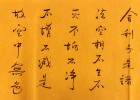 舍利子是諸
法空相不生不
滅不垢不淨
不增不減是
故空中無色